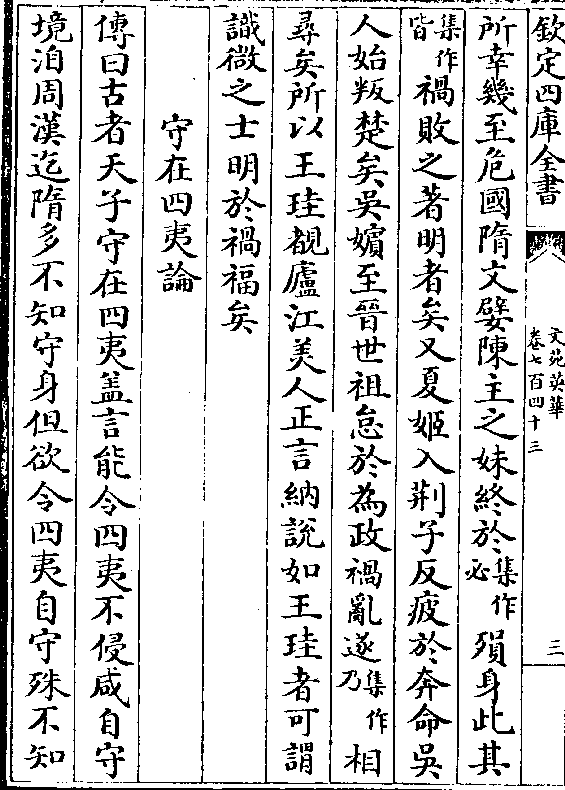 欽定四庫全書
文苑英華
卷七百四十三
三
所幸幾至危國隋文嬖陳主之妹終於集作必殞身此其
集作皆禍敗之著明者矣又夏姬入荆子反疲於奔命吳
人始叛楚矣吳嬪至晉世祖怠於為政禍亂遂集作乃相
尋矣所以王珪覩廬江美人正言納說如王珪者可謂
識微之士明於禍福矣
守在四夷論
傳曰古者天子守在四夷盖言能令四夷不侵咸自守
境洎周漢迄隋多不知守身但欲令四夷自守殊不知